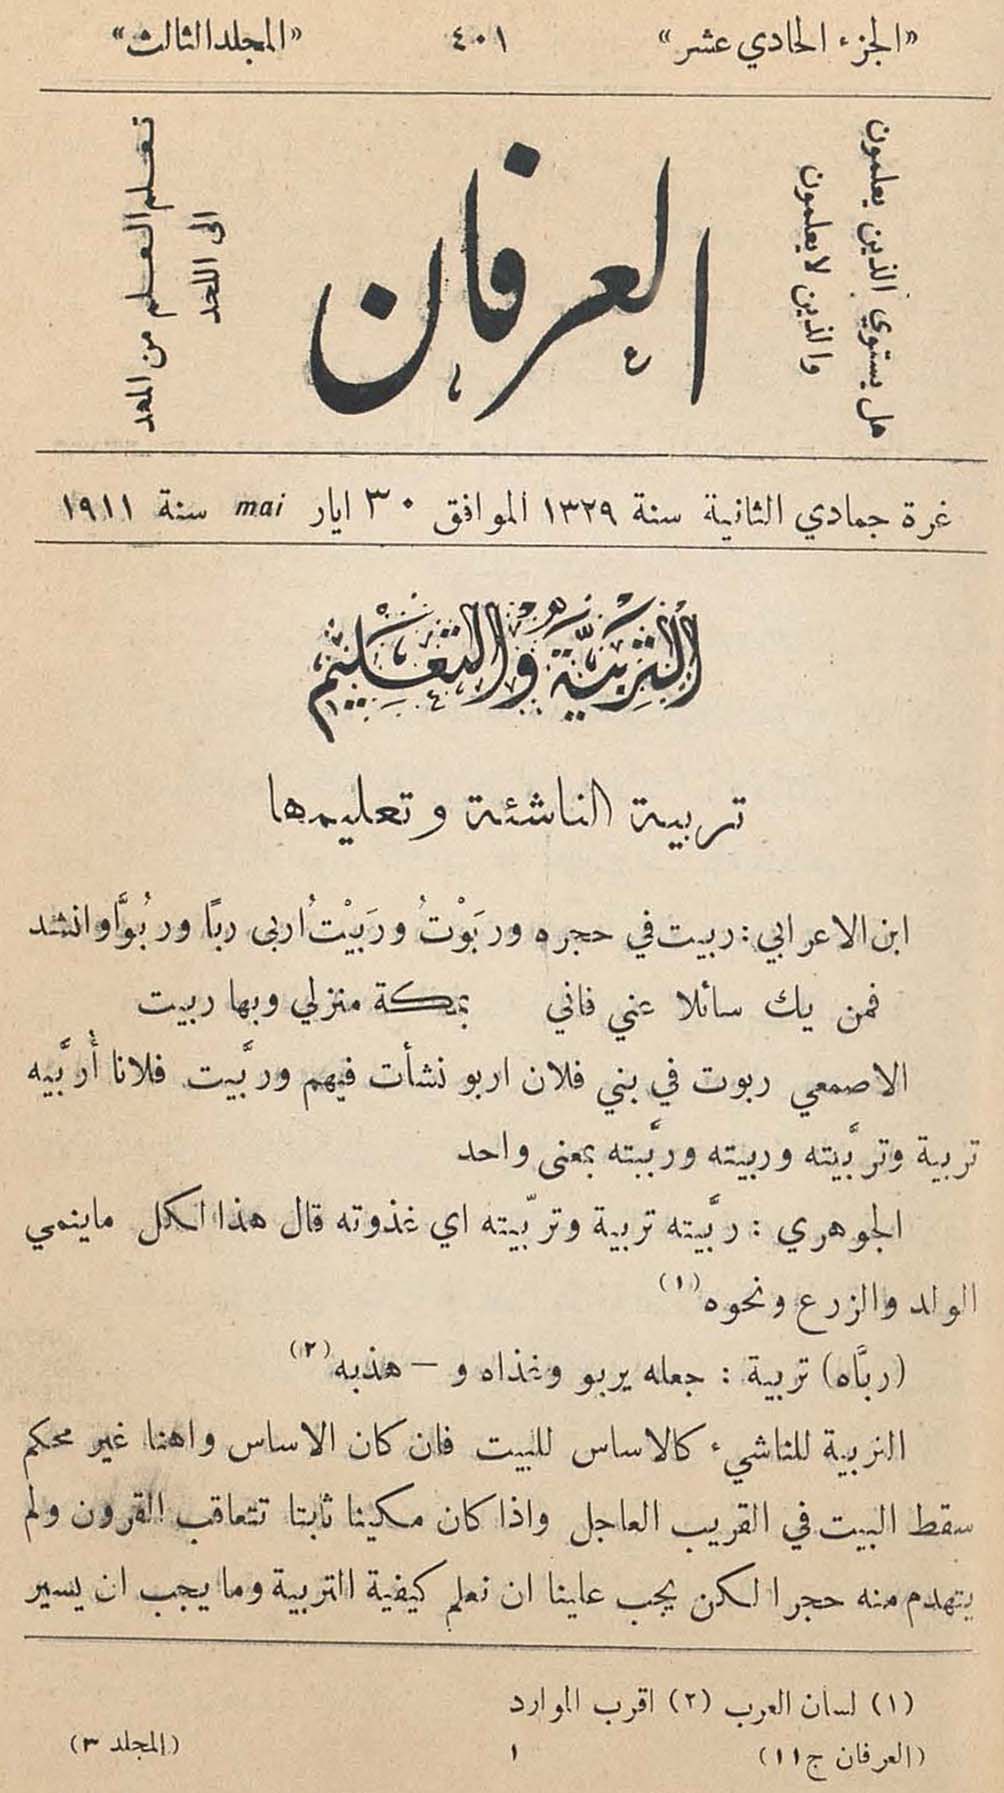 «الجزء الحادي عشر» ٤٠١ «المجلد الثالث»
هل يستوي الذين يعلمون
والذين لا يعلمون
العرفان
تعلم العلم من المهد
الى اللحد
غرة جمادي الثانية سنة ١٣٢٩ الموافق ٣٠ ايار mai سنة ١٩١١
التربية والتعليم
تربية الناشئة وتعليمها
ابن الاعرابي: ربيت في حجره وربَوْتُ وربَيْتُ اربى ربًا ورُبوًّا وانشد
فمن يك سائلا عني فاني بمكة منزلي وبها ربيت
الاصمعي ربوت في بني فلان اربو نشأت فيهم وربَّيت فلانا أُربَّيه
تربية وتربَّيته وربيته وربَّبته بمعنى واحد
الجوهري : ربَّيته تربية وتربّيته اي غذوته قال هذا لكل ماينمي
الولد والزرع ونحوه (١)
(ربَّاه) تربية : جعله يربو وغذاه و — هذبه (٢)
التربية للناشيء كالاساس للبيت فان كان الاساس واهنا غير محكم
سقط البيت في القريب العاجل واذا كان مكينا ثابتا تتعاقب القرون ولم
يتهدم منه حجرا لكن يجب علينا ان نعلم كيفية التربية وما يجب ان يسير
(١) لسان العرب (٢) اقرب الموارد
(العرفان ج١١) ١ (المجلد ٣)